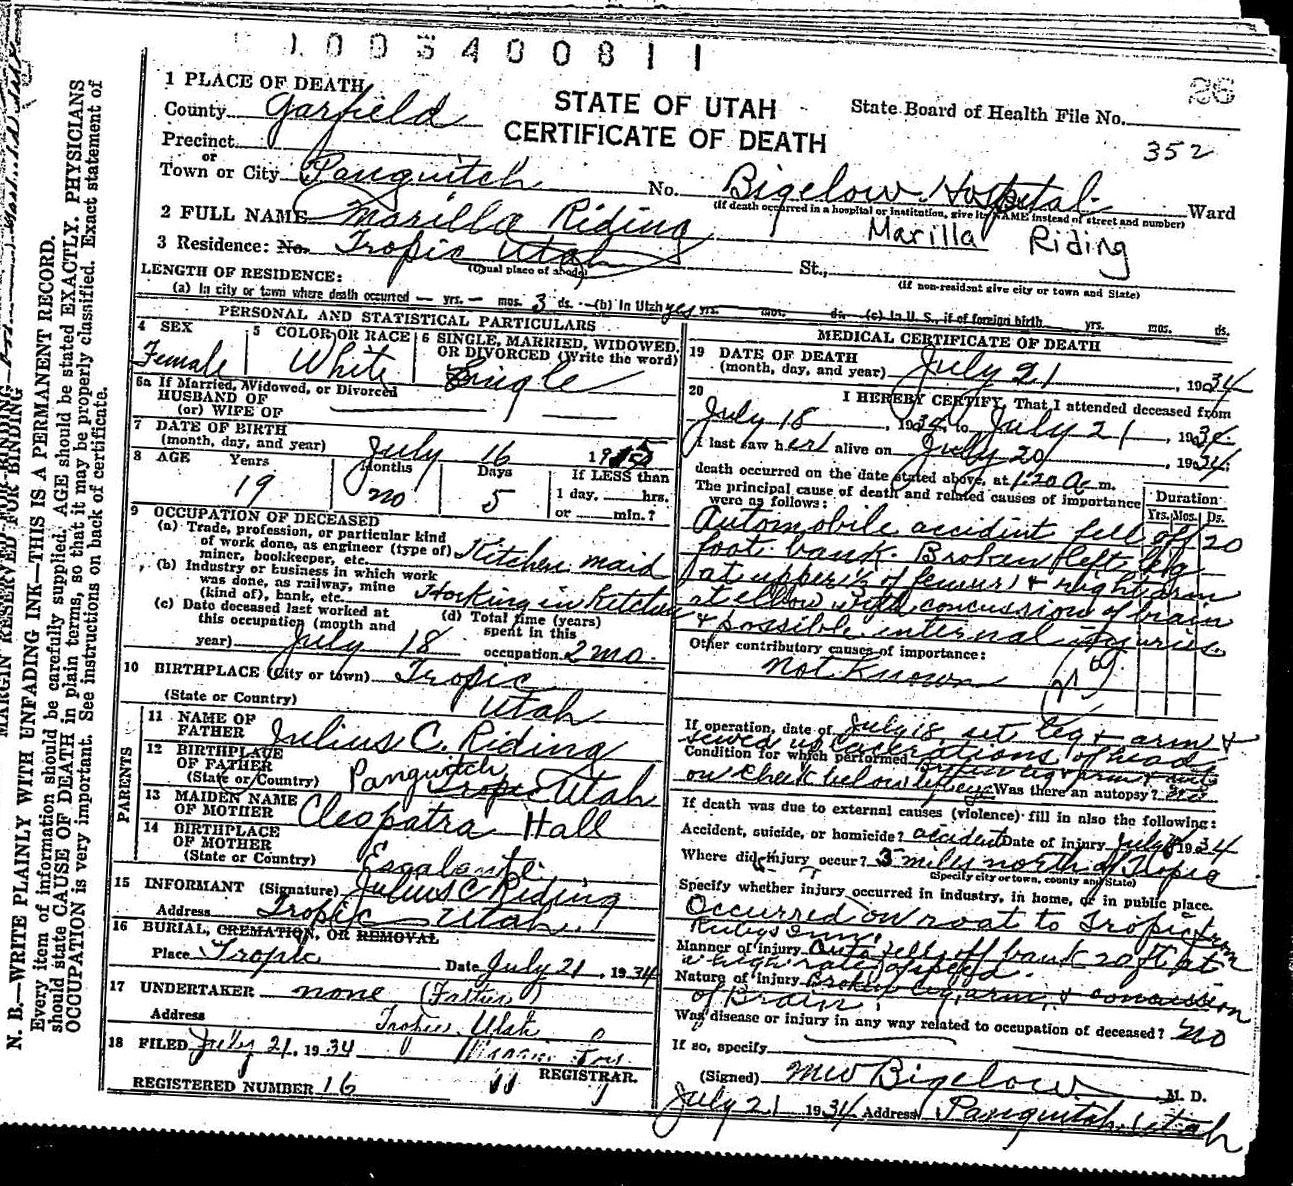 1 0 0 3 4 0 0 8 1 1
26
1 PLACE OF DEATH
County Garfield
STATE OF UTAH
CERTIFICATE OF DEATH
State Board of Health File No.
352
Precinct
or
Town or City Panguitch No. Bigelow Hospital Ward
(If death occurred in a hospital or institution, give its NAME instead of street and number)
2 FULL NAME Marilla Riding
Marilla Riding
3 Residence: No. Tropic Utah St.,
(Usual place of abode)
(If non-resident give city or town and State)
LENGTH OF RESIDENCE:
(a) In city or town where death occurred — yrs. — mos. 3 ds. (b) In Utah yes yrs. mos. ds. (c) In U. S., if of foreign birth yrs. mos. ds.
PERSONAL AND STATISTICAL PARTICULARS
4 SEX
Female
5 COLOR OR RACE
White
6 SINGLE, MARRIED, WIDOWED, OR DIVORCED (Write the word)
Single
6a If Married, Widowed, or Divorced
HUSBAND OF
(or) WIFE OF
7 DATE OF BIRTH
(month, day, and year) July 16 1915
8 AGE Years Months Days If LESS than
19 no 5 1 day, hrs.
or min.?
9 OCCUPATION OF DECEASED
(a) Trade, profession, or particular kind
of work done, as engineer (type of)
miner, bookkeeper, etc. Kitchen maid
(b) Industry or business in which work
was done, as railway, mine
(kind of), bank, etc. Working in Kitchen
(c) Date deceased last worked at
this occupation (month and
year) July 18
(d) Total time (years)
spent in this
occupation 2 mo.
10 BIRTHPLACE (City or town) Tropic
(State or Country) Utah
PARENTS
11 NAME OF
FATHER Julius C. Riding
12 BIRTHPLACE
OF FATHER
(State or Country) Panguitch Tropic Utah
13 MAIDEN NAME
OF MOTHER Cleopatra Hall
14 BIRTHPLACE
OF MOTHER
(State or Country) Escalante
15 INFORMANT (Signature) Julius C Riding
Address Tropic Utah
16 BURIAL, CREMATION, OR REMOVAL
Place Tropic Date July 21, 1934
17 UNDERTAKER none (Father)
Address Tropic, Utah
18 FILED July 21, 1934
REGISTRAR.
REGISTERED NUMBER 16
MEDICAL CERTIFICATE OF DEATH
19 DATE OF DEATH
(month, day, and year) July 21, 1934
20 I HEREBY CERTIFY, That I attended deceased from
July 18, 1934 to July 21, 1934
I last saw her alive on July 20, 1934;
death occurred on the date stated above, at 1:20 a m.
The principal cause of death and related causes of importance
were as follows:
Duration
Yrs. Mos. Ds.
Automobile accident fell off 20
foot bank. Broken left leg
at upper ⅓ of femur & right arm
at elbow with concussion of brain
& possible internal injuries
Other contributory causes of importance:
Not Known
If operation, date of July 18 set leg & arm &
sewed up lacerations of head
Condition for which performed Broken leg & arm & cuts
on cheek below left eye Was there an autopsy? no
If death was due to external causes (violence) fill in also the following:
Accident, suicide, or homicide? accident Date of injury July 18 1934
Where did injury occur? 3 miles north of Tropic
(Specify city or town, county and State)
Specify whether injury occurred in industry, in home, or in public place.
Occurred on road to Tropic from
Rubys Inn.
Manner of injury Auto fell off bank 20 ft at
a high rate of speed.
Nature of injury Broken leg, arm, & concussion
of Brain.
Was disease or injury in any way related to occupation of deceased? No
If so, specify
(Signed) M W Bigelow M. D.
July 21 1934 Address Panguitch, Utah
MARGIN RESERVED FOR BINDING
N. B.—WRITE PLAINLY WITH UNFADING INK—THIS IS A PERMANENT RECORD.
Every item of information should be carefully supplied. AGE should be stated EXACTLY. PHYSICIANS
should state CAUSE OF DEATH in plain terms, so that it may be properly classified. Exact statement of
OCCUPATION is very important. See instructions on back of certificate.